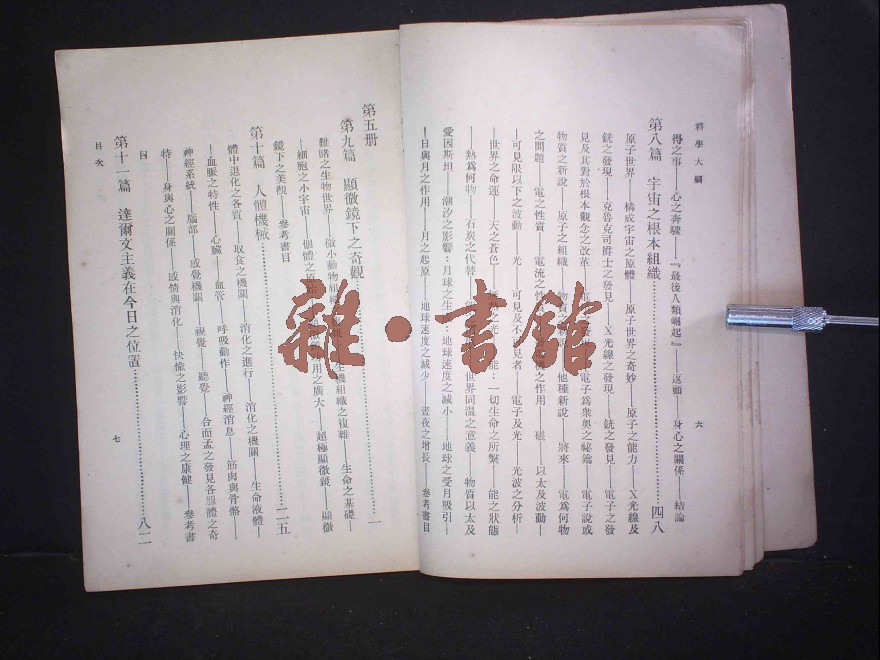 科學大綱
六
得之事——心之奔驟——『最後人類崛起』——返顧——身心之關係——結論
第八篇 宇宙之根本組織…………四八
原子世界——構成宇宙之原體——原子世界之奇妙——原子之能力——X光線及
銑之發現——克魯克司爵士之發見——X光線之發現——銑之發見——電子之發
見及其對於根本觀念之改革——電子爲衆奥之祕鑰——電子說或
物質之新說——原子之組織——物質 他種新說——將來——電爲何物
之問題——電之性質——電流之性 之作用——磁——以太及波動——
——可見限以下之波動——光——可見及不可見者——電子及光——光波之分析——
——世界之命運——天之蒼色 之光 能：一切生命之所繫——能之狀態
——熱爲何物——石炭之代替 世界同溫之意義——物質以太及
愛因斯坦——潮汐之影響：月球之生 ：地球速度之減小——地球之受月吸引——
——日與月之作用——月之起原——地球速度之減少——晝夜之增長——參考書目
第五册
第九篇 顯微鏡下之奇觀…………一
難睹之生物世界——微小動物組織 生機組織之複雜——生命之基礎——
——細胞之小宇宙——個體之原始 用之廣大——超極顯微鏡——顯微
鏡下之美觀——參考書目
第十篇 人體機械…………二五
體中退化之各質——取食之機關——消化之進行——消化之機關——生命液體——
——血脈之特性——心臟——血管——呼吸動作——神經消息——筋肉與骨骼——
神經系統——腦部——感覺機關——視覺——聽覺——合而孟之發見各腺體之奇
特——身與心之關係——感情與消化——快愉之影響——心理之康健——參考書
目
第十一篇 達爾文主義在今日之位置…………八二
目次
七
雜·書館